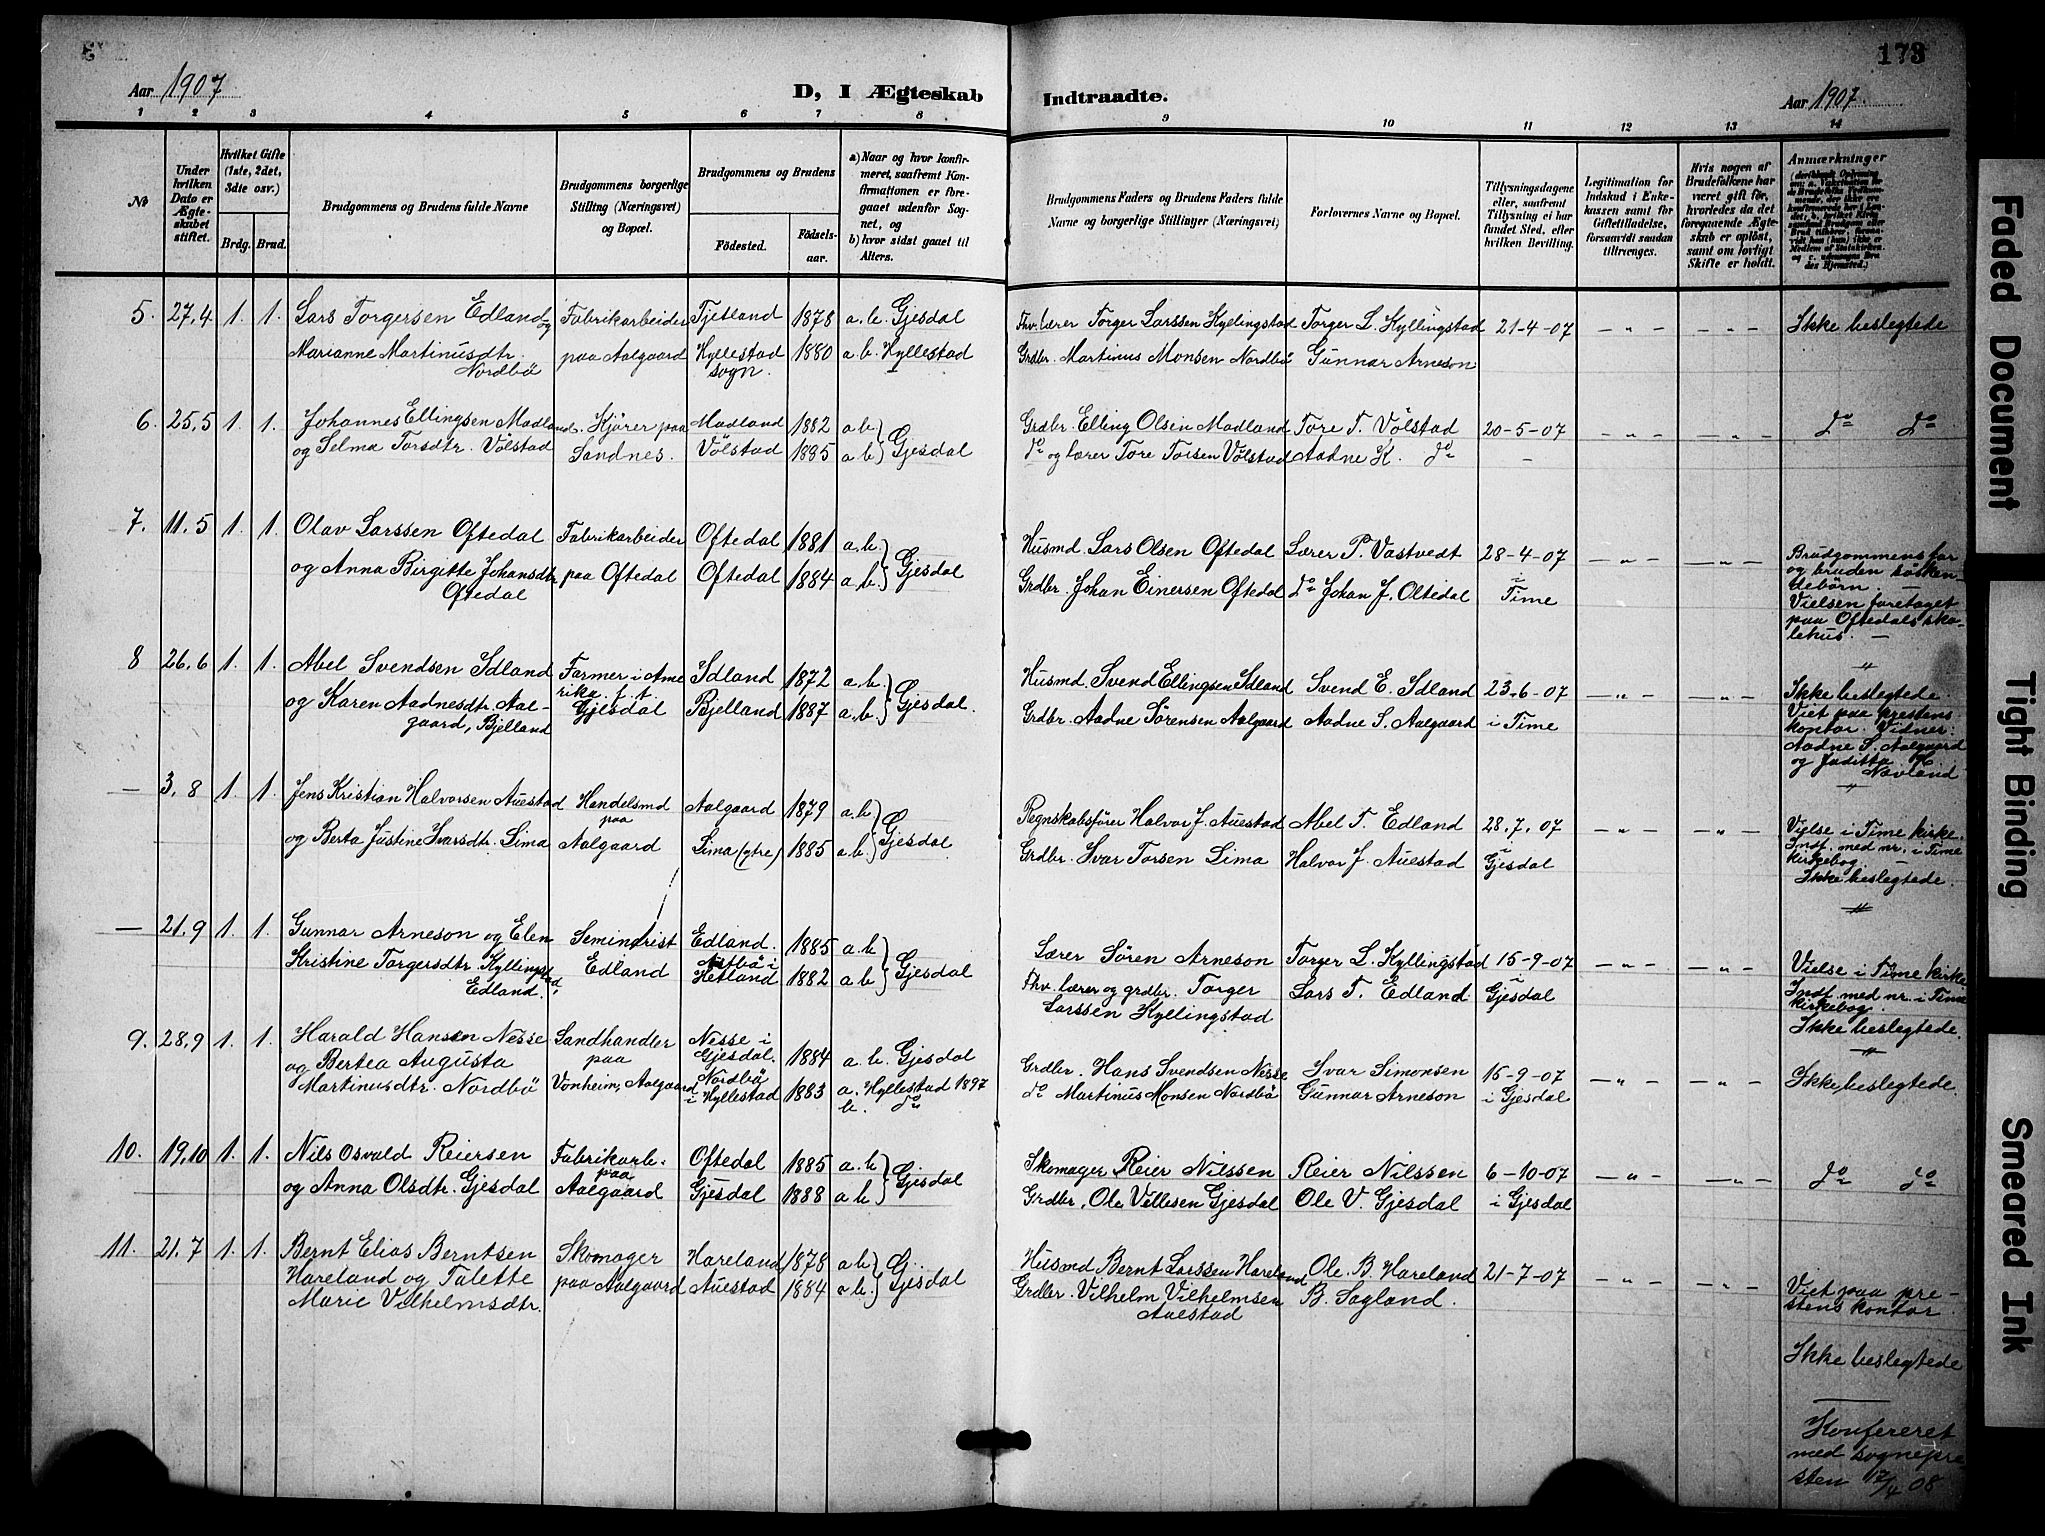 173
Aar 1907
D, I Ægteskab Indtraadte.
Aar 1907.
1 2 3 4 5 6 7 8 9 10 11 12 13 14
№
Under hvilken Dato er Ægteskabet stiftet.
Hvilket Gifte (1ste, 2det, 3die osv.)
Brdg. Brud.
Brudgommens og Brudens fulde Navne
Brudgommens borgerlige Stilling (Næringsvei) og Bopæl.
Brudgommens og Brudens
Födested.
Födsels-aar.
a) Naar og hvor konfirmeret, saafremt Konfirmationen er foregaaet udenfor Sognet, og
b) hvor sidst gaaet til Alters.
Brudgommens Faders og Brudens Faders fulde Navne og borgerlige Stillinger (Næringsvei)
Forlovernes Navne og Bopæl.
Tillysningsdagene eller, saafremt Tillysning ei har fundet Sted, efter hvilken Bevilling.
Legitimation for Indskud i Enkekassen samt for Giftetilladelse, forsaavidt saadan tiltrænges.
Hvis nogen af Brudefolkene har været gift før, hvorledes da det foregaaende Ægteskab er oplöst, samt om lovligt Skifte er holdt.
Anmærkninger
5. 27.4 1. 1. Lars Torgersen Edland og Fabrikarbeider Tjetland 1878 a.b. Gjesdal Fhv. lærer Torger Larssen Kyllingstad Torger L. Kyllingstad 21-4-07 — „ — — „ — Ikke beslegtede
Marianne Martinusdtr. Nordbö paa Aalgaard Hyllestad sogn. 1880 a.b. Hyllestad Grdbr. Martinus Monsen Nordbö Gunnar Arneson
6. 25.5 1. 1. Johannes Ellingsen Madland. Kjører paa Madland 1882 a b Grdbr. Elling Olsen Madland Tore T. Völstad 20-5-07 — „ — — „ — do do
og Selma Torsdtr. Völstad Sandnes. Völstad 1885 a b Gjesdal do og lærer Tore Torsen Völstad Aadne K. do -
7. 11.5 1. 1. Olav Larssen Oftedal Fabrikarbeider Oftedal 1881 a.b. Husmd. Lars Olsen Oftedal Lærer P. Vastvedt 28-4-07 — „ — — „ — Brudgommens far
og Anna Birgitte Johansdtr. Oftedal paa Oftedal Oftedal 1884 a.b. Gjesdal Grdbr. Johan Einersen Oftedal do Johan J. Oltedal i Time
og bruden sösken-
debörn. —
Vielsen foretaget
paa Oftedals sko-
lehus. —
8 26.6 1. 1. Abel Svendsen Idland Farmer i Amerika. f. t. Idland 1872 a.b. Husmd. Svend Ellingsen Idland Svend E. Idland 23-6-07 — „ — — „ — Ikke beslegtede.
og Karen Aadnesdtr. Aalgaard, Bjelland Gjesdal Bjelland 1887 a.b. Gjesdal. Grdbr. Aadne Sörensen Aalgaard Aadne S. Aalgaard i Time
Viet paa prestens
kontor. Vidner:
Aadne S. Aalgaard
og Juditta
Navland
— 3.8 1. 1. Jens Kristian Halvorsen Auestad Handelsmd paa Aalgaard 1879 a.b Regnskabsfører Halvor J. Auestad Abel T. Edland 28.7.07 — „ — — „ — Vielse i Time kirke.
og Berta Justine Ivarsdtr. Lima Aalgaard Lima (ytre) 1885 a.b. Gjesdal Grdbr. Ivar Torsen Lima Halvor J. Auestad i Gjesdal
Indf. med nr. i Time
kirkebog. —
Ikke beslegtede.
— 21.9 1. 1. Gunnar Arneson og Elen Seminarist Edland. 1885 a b Lærer Sören Arneson Torger L. Kyllingstad 15-9-07 — „ — — „ — Vielse i Time kirke
Kristine Torgersdtr. Kyllingstad, Edland. Edland Hetland 1882 a b Gjesdal Fhv. lærer og grdbr. Torger Larssen Kyllingstad Lars T. Edland i Gjesdal
Indf. med nr. i Time
kirkebog.
Ikke beslegtede.
9. 28.9 1. 1. Harald Hansen Nesse Sandhandler Nesse i Gjesdal. 1884 a.b. Gjesdal Grdbr. Hans Svendsen Nesse Ivar Simonsen 15-9-07 — „ — — „ — Ikke beslegtede.
og Bertea Augusta paa
Martinusdtr. Nordbö Vonheim, Aalgaard Nordbö i Hyllestad 1883 a. Hyllestad 1897 b. do do Martinus Monsen Nordbö Gunnar Arneson i Gjesdal
10. 19.10 1. 1. Nils Osvald Reiersen Fabrikarb. paa Oftedal 1885 a.b Skomager Reier Nilssen Reier Nilssen 6-10-07 — „ — — „ — do do
og Anna Olsdtr. Gjesdal Aalgaard Gjesdal 1888 a b Gjesdal Grdbr. Ole Villesen Gjesdal Ole V. Gjesdal i Gjesdal
11. 21.7 1. 1. Bernt Elias Berntsen Skomager Hareland 1878 a b Husmd Bernt Larssen Hareland Ole. B. Hareland 21-7-07 — „ — — „ — Viet paa pre-
Hareland og Talette paa Aalgaard Auestad 1884 a b. Gjesdal Grdbr. Vilhelm Vilhelmsen Auestad B. Sagland.
Marie Vilhelmsdtr.
stens kontor
Ikke beslegtede
Konfereret
med sognepre
sten 17/4 08
Faded Document
Tight Binding
Smeared Ink